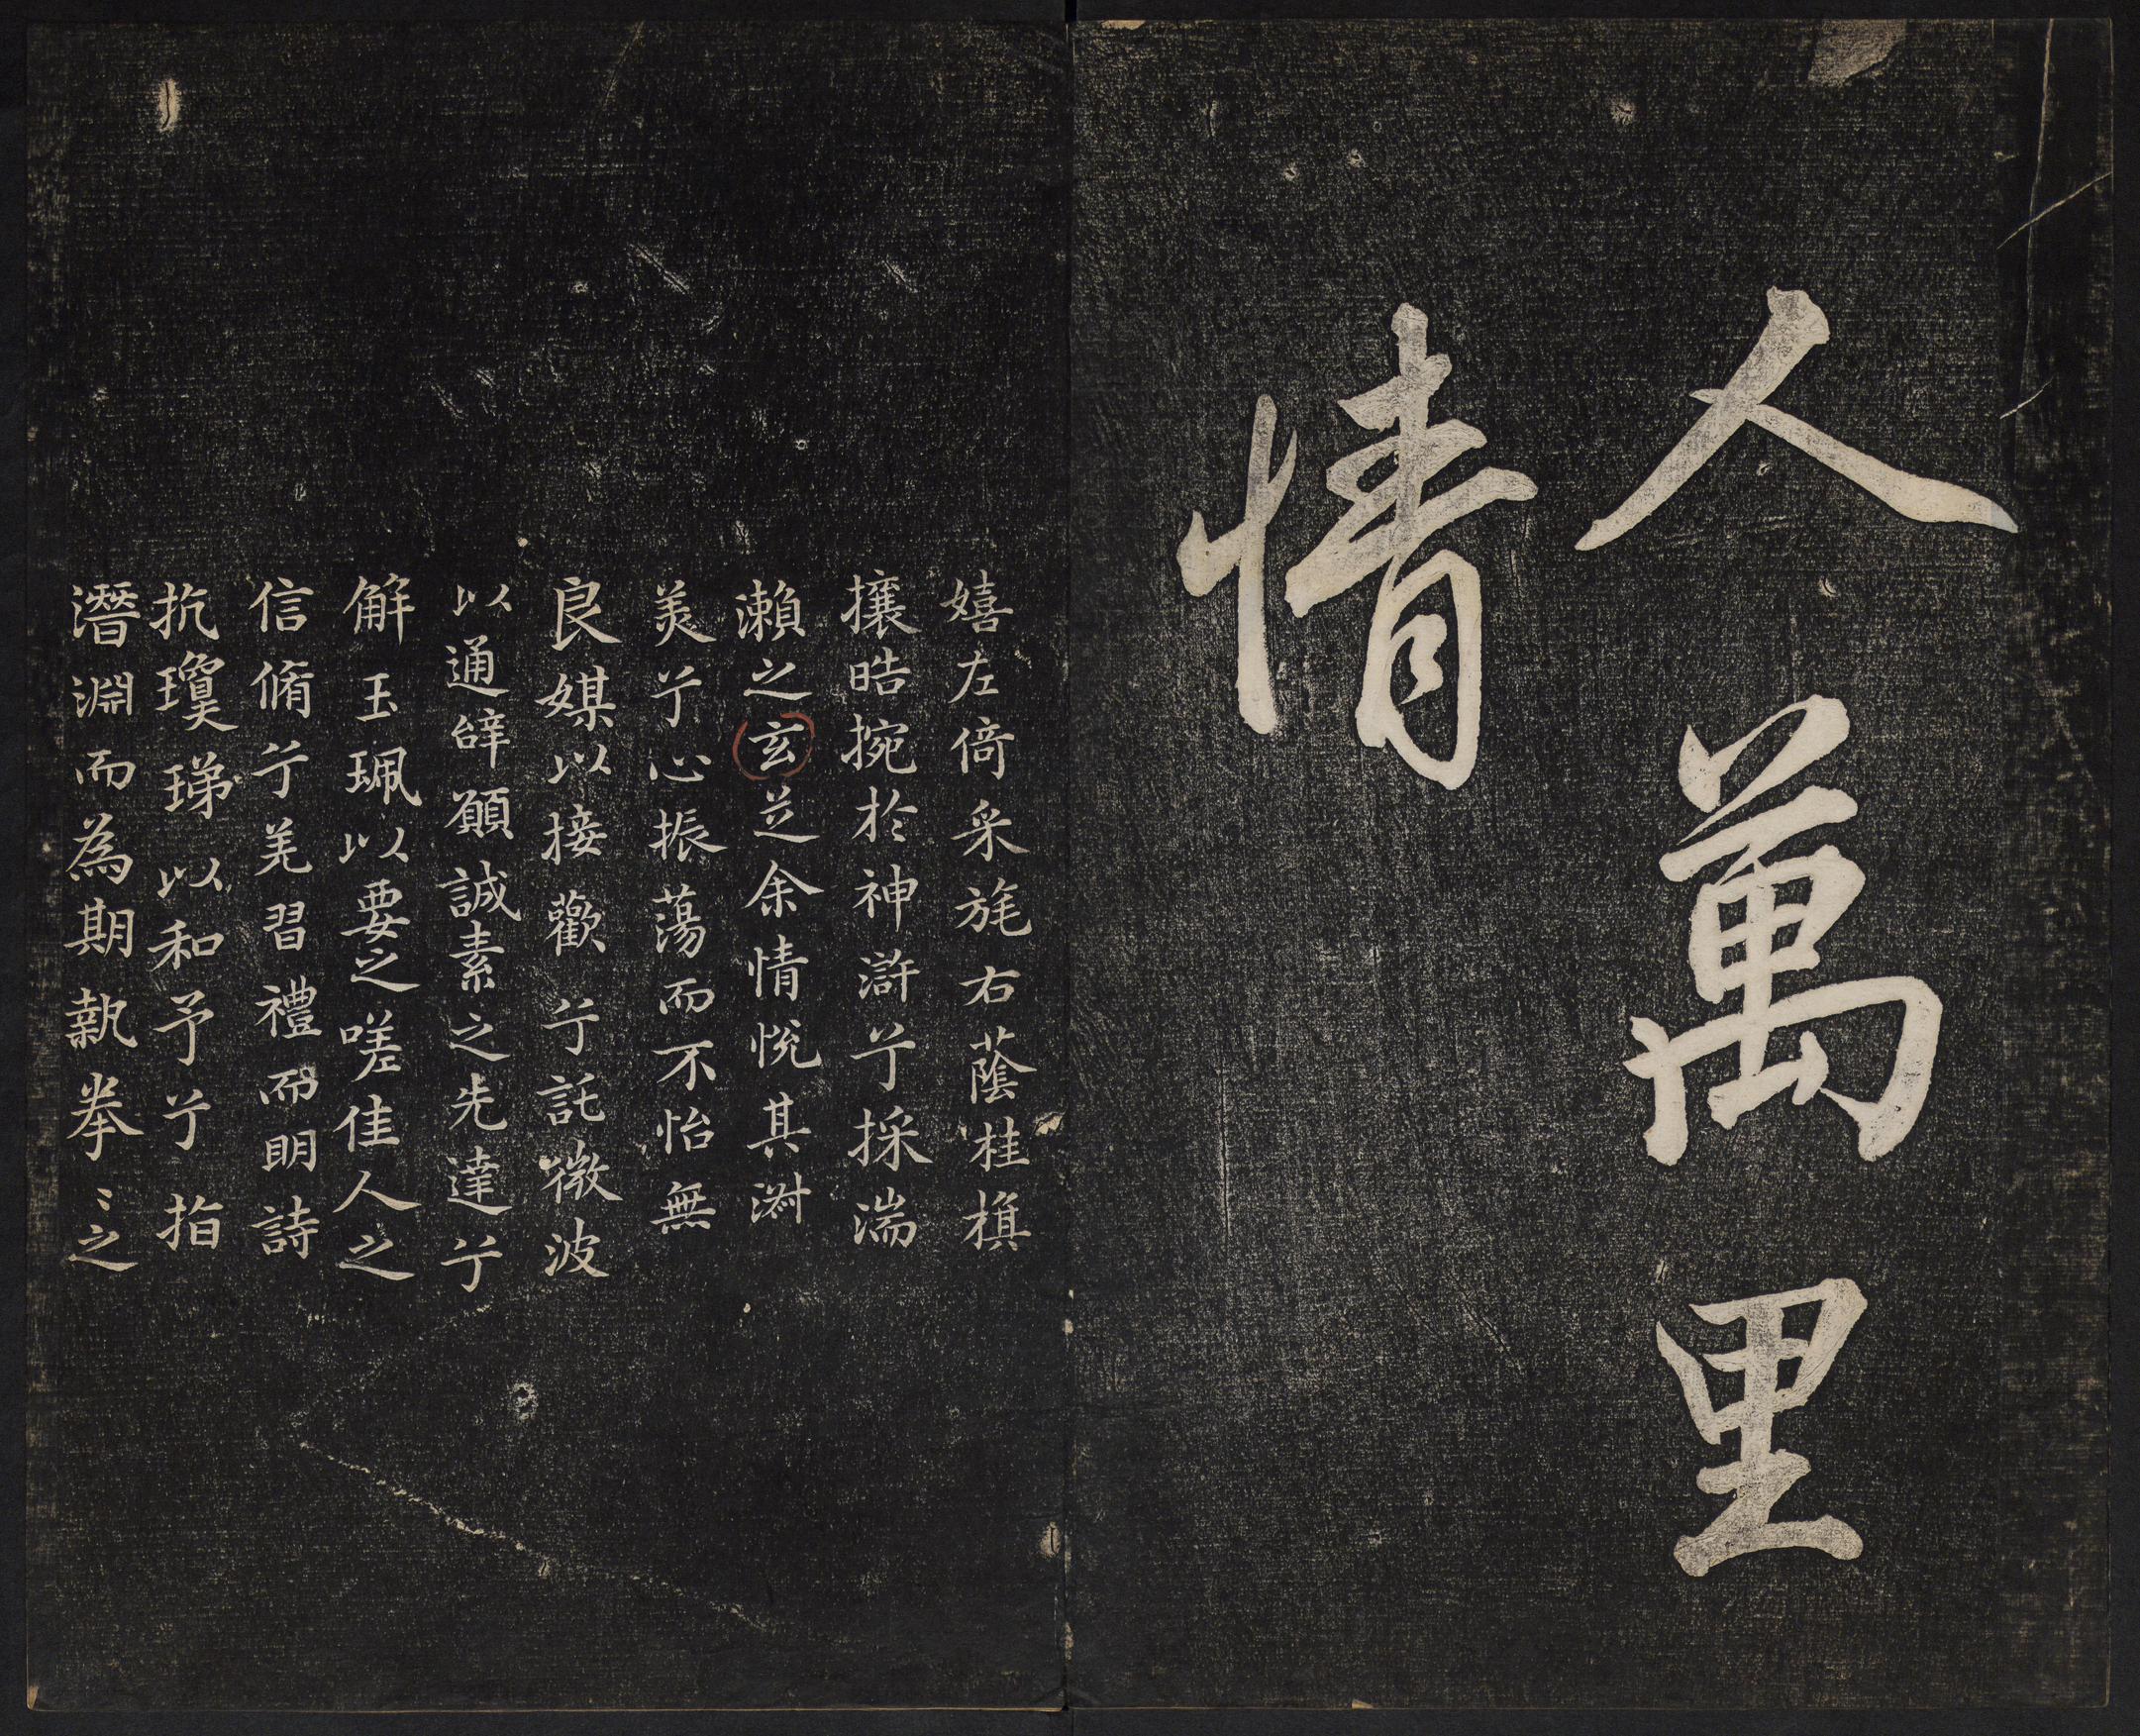 人萬里
情
嬉左倚采旄右蔭桂旗
攘皓捥於神滸兮採湍
瀨之玄芝余情悅其淑
美兮心振蕩而不怡無
良媒以接歡兮託微波
以通辭願誠素之先達兮
解玉珮以要之嗟佳人之
信脩兮羌習禮而明詩
抗瓊珶以和予兮指
潛淵而為期執拳〻之